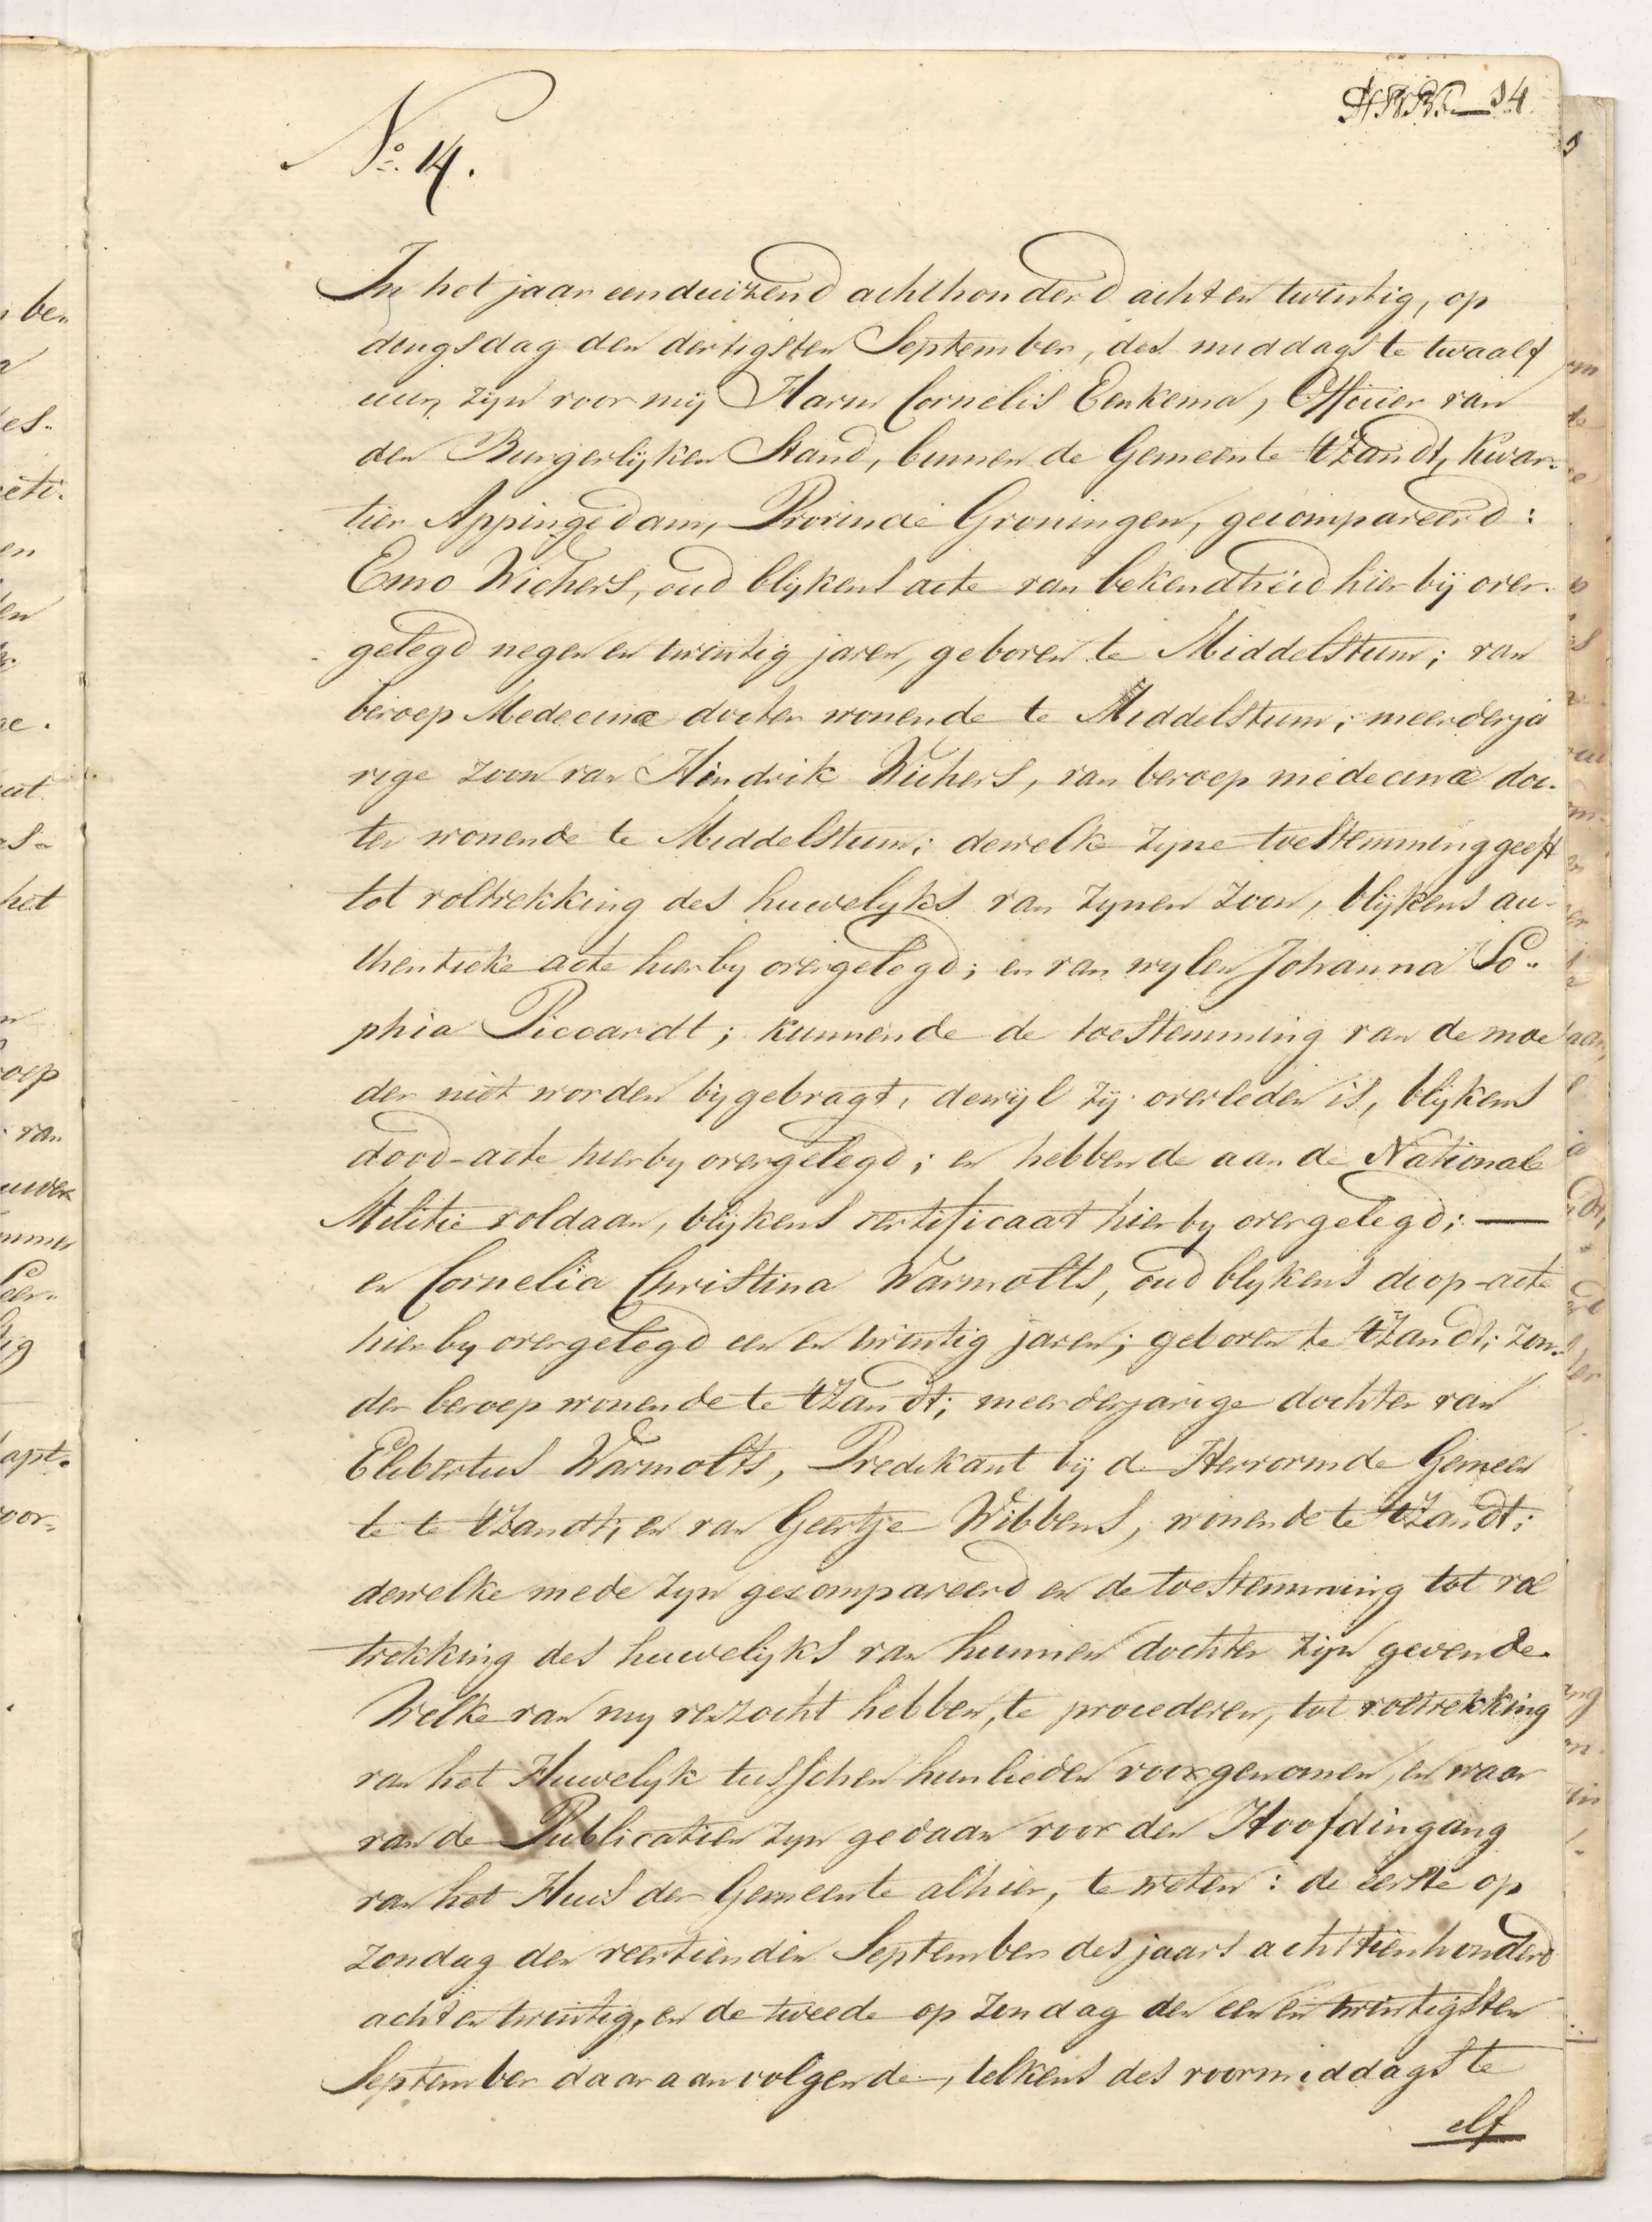 14
No. 14.
In het jaar eenduizend achthonderd acht en twintig, op
dingsdag den dertigsten September, des middags te twaalf
uur, zijn voor mij Harm Cornelis Eenkema, Officier van
den Burgerlijken Stand, binnen de Gemeente 't Zandt, Kwar-
tier Appingedam, Provincie Groningen, gecompareerd:
Emo Wichers, oud blykens acte van bekendheid hier bij over-
gelegd negen en twintig jaren, geboren te Middelstum; van
beroep Medecinæ docter wonende te Middelstum; meerderja
rige zoon van Hindrik Wichers, van beroep medecinæ doc-
ter wonende te Middelstum; dewelke zyne toestemming geeft
tot voltrekking des huwelyks van zynen zoon, blijkens au-
thentieke acte hierby overgelegd; en van wylen Johanna So-
phia Piccardt; kunnende de toestemming van de moe
der niet worden bygebragt, dewijl zij overleden is, blijkens
dood-acte hierby overgelegd; en hebbende aan de Nationale
Militie voldaan, blijkens certificaat hierby overgelegd; —
en Cornelia Christina Warmolts, oud blykens doop-acte
hierby overgelegd een en twintig jaren; geboren te 't Zandt; zon-
der beroep wonende te 't Zandt; meerderjarige dochter van
Elibertus Warmolts, Predikant bij de Hervormde Gemeen
te te 't Zandt, en van Geertje Wibbens, wonende te 't Zandt;
dewelke mede zyn gecompareerd en de toestemming tot vol
trekking des huwelijks van hunnen dochter zijn gevende.
Welke van my verzocht hebben, te procederen, tot voltrekking
van het Huwelyk tusschen hunlieden voorgenomen, en waar
van de Publicatien zyn gedaan voor den Hoofdingang
van het Huis der Gemeente alhier, te weten: de eerste op
zondag den veertienden September des jaars achttienhonderd
acht en twintig, en de tweede op zondag den een en twintigsten
September daaraanvolgende, telkens des voormiddags te
elf